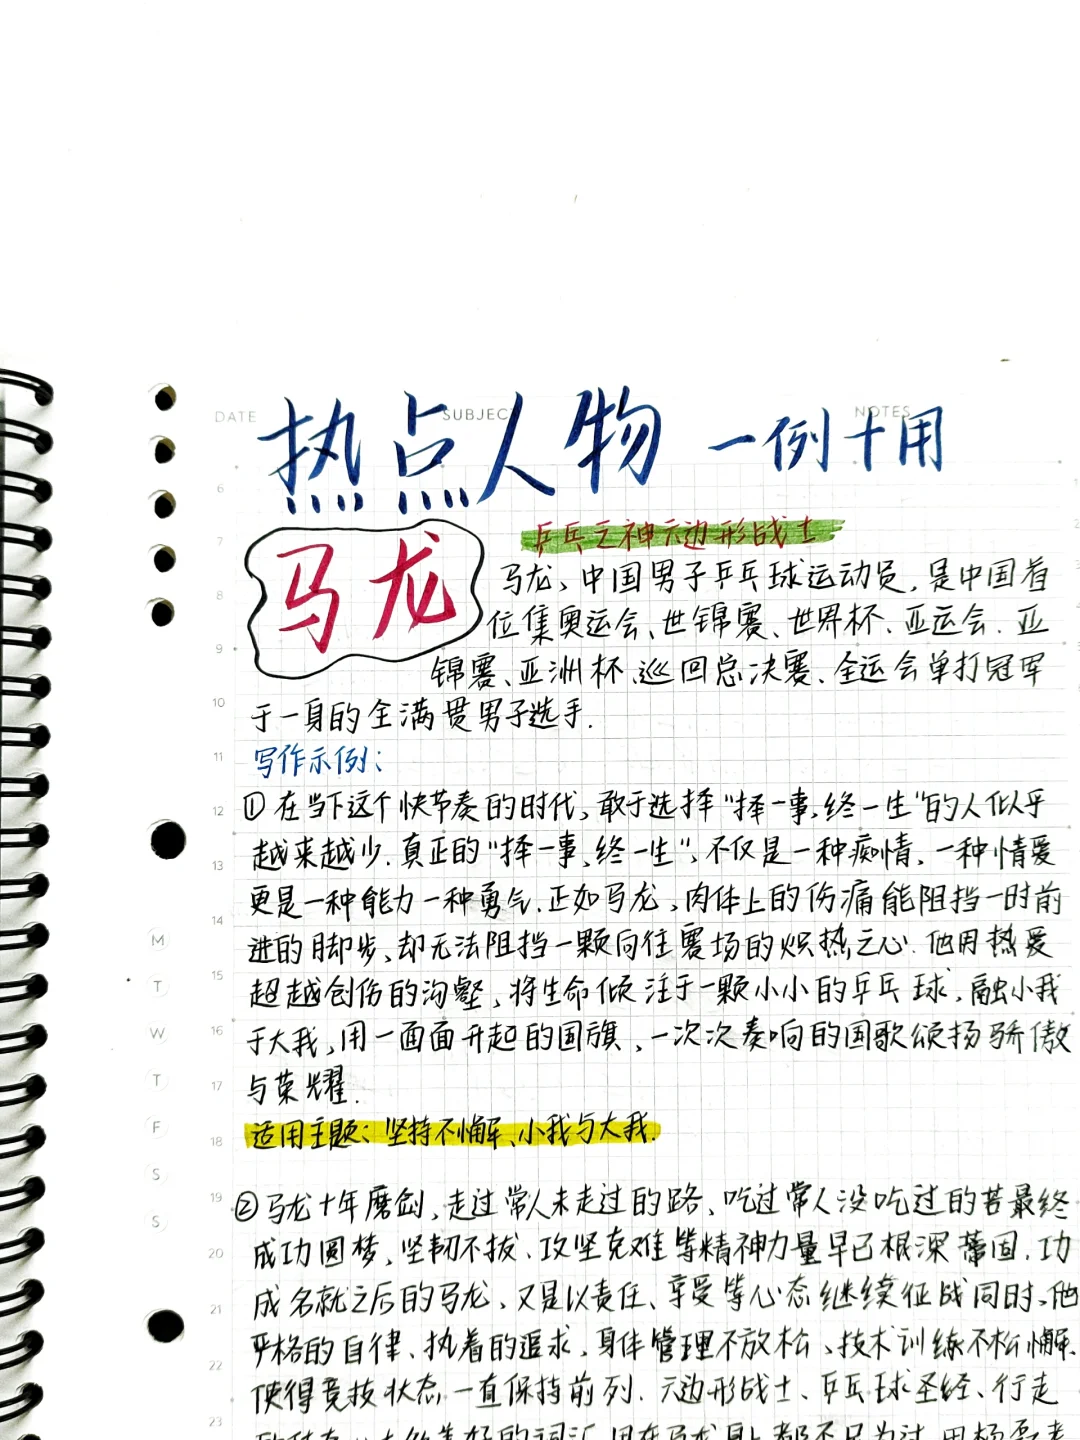 DATE
SUBJECT
NOTES
热点人物 一例十用
乒乓之神六边形战士
马龙
马龙、中国男子乒乓球运动员,是中国首
位集奥运会、世锦赛、世界杯、亚运会、亚
锦赛、亚洲杯、巡回总决赛、全运会单打冠军
于一身的全满贯男子选手.
写作示例:
①在当下这个快节奏的时代,敢于选择“择一事,终一生”的人似乎
越来越少.真正的“择一事,终一生”,不仅是一种痴情、一种情爱
更是一种能力一种勇气.正如马龙,肉体上的伤痛能阻挡一时前
进的脚步,却无法阻挡一颗向往赛场的炽热之心.他用热爱
超越创伤的沟壑,将生命倾注于一颗小小的乒乓球,融小我
于大我,用一面面升起的国旗,一次次奏响的国歌颂扬骄傲
与荣耀.
适用主题:坚持不懈、小我与大我.
②马龙十年磨剑,走过常人未走过的路、吃过常人没吃过的苦最终
成功圆梦,坚韧不拔、攻坚克难等精神力量早已根深蒂固.功
成名就之后的马龙,又是以责任、享受等心态继续征战同时,他
严格的自律、执着的追求,身体管理不放松、技术训练不松懈.
使得竞技状态一直保持前列.六边形战士、乒乓球圣经、行走
6
7
8
9
10
11
12
13
14
15
16
17
18
19
20
21
22
23
M
T
W
T
F
S
S